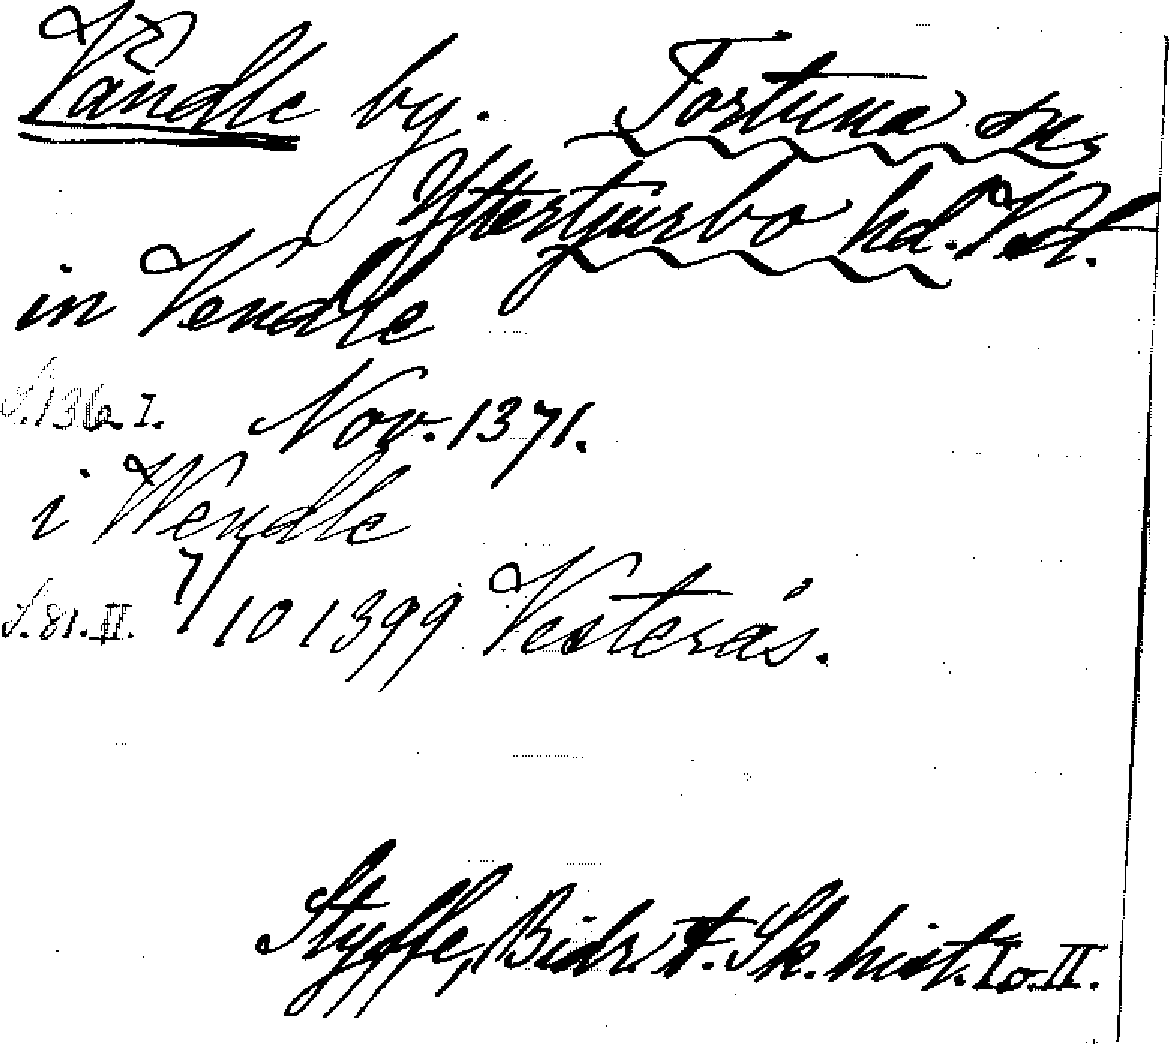 Vändle by. Fortuna sn,
Yttertjurbo hd. Vstm.
in Vendle
S. 136. I. Nov. 1371.
i Wendle
S. 81. II. 7/10 1399 Vesterås.
Styffe, Bidr. t. Sk. hist. I o. II.